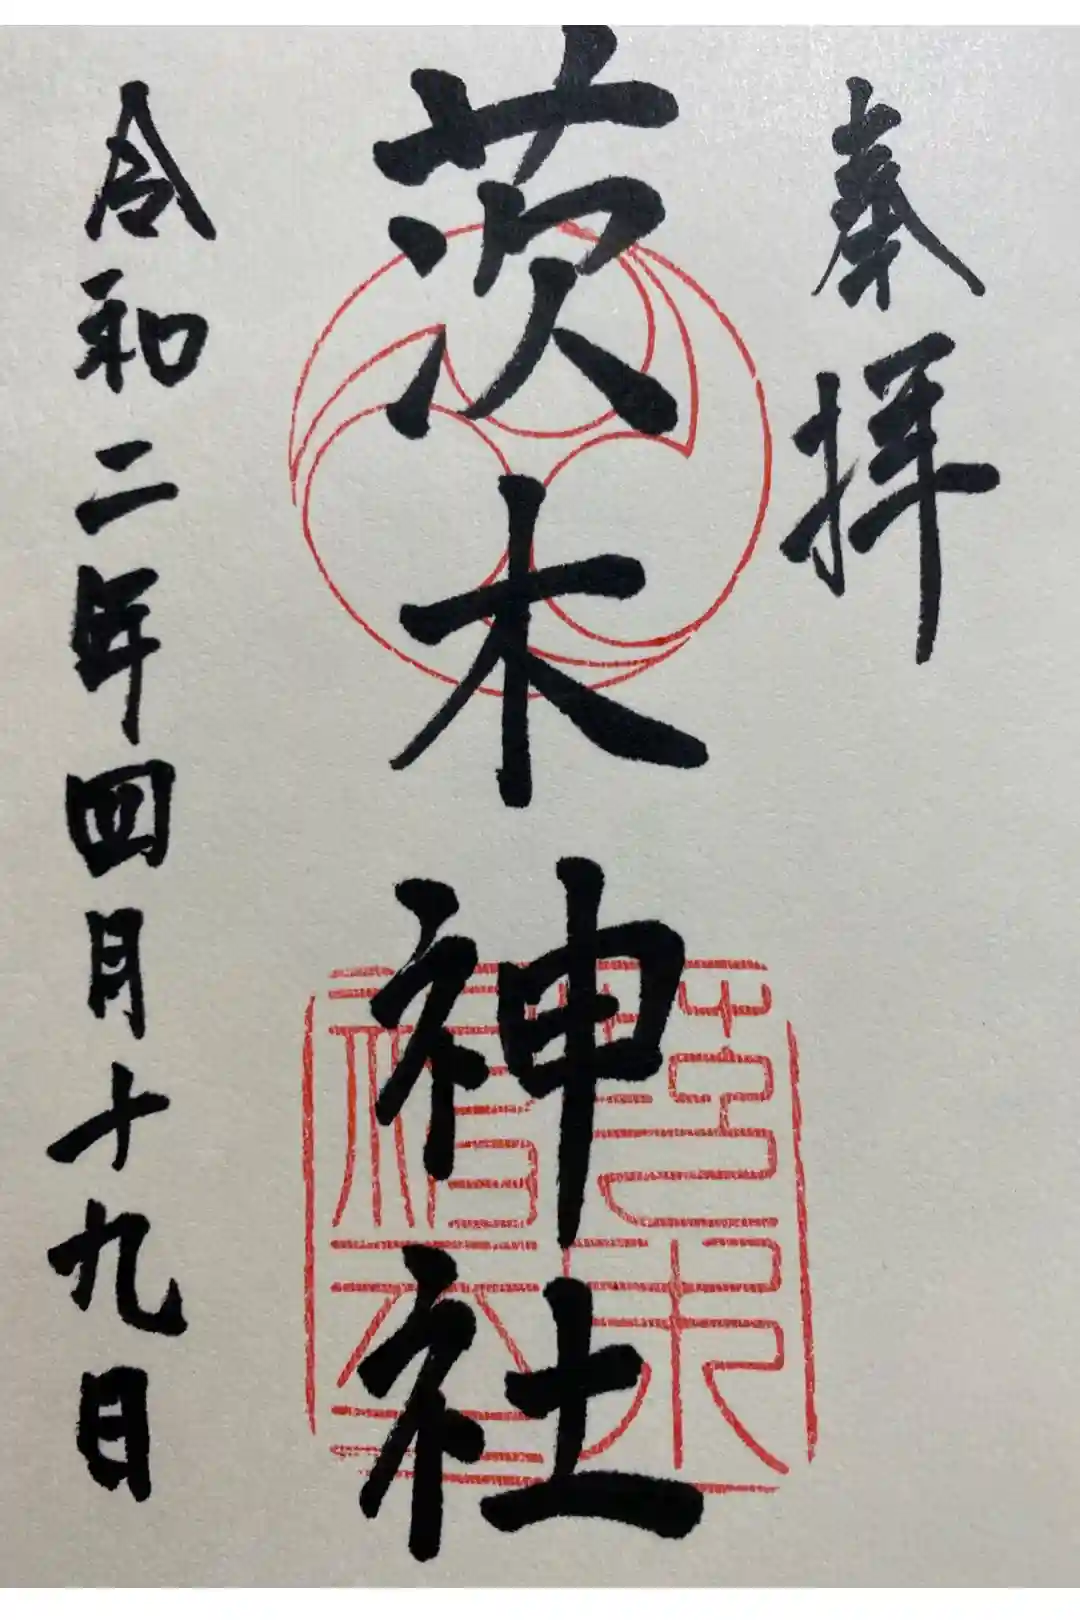 奉拝
茨木神社
令和二年四月十九日